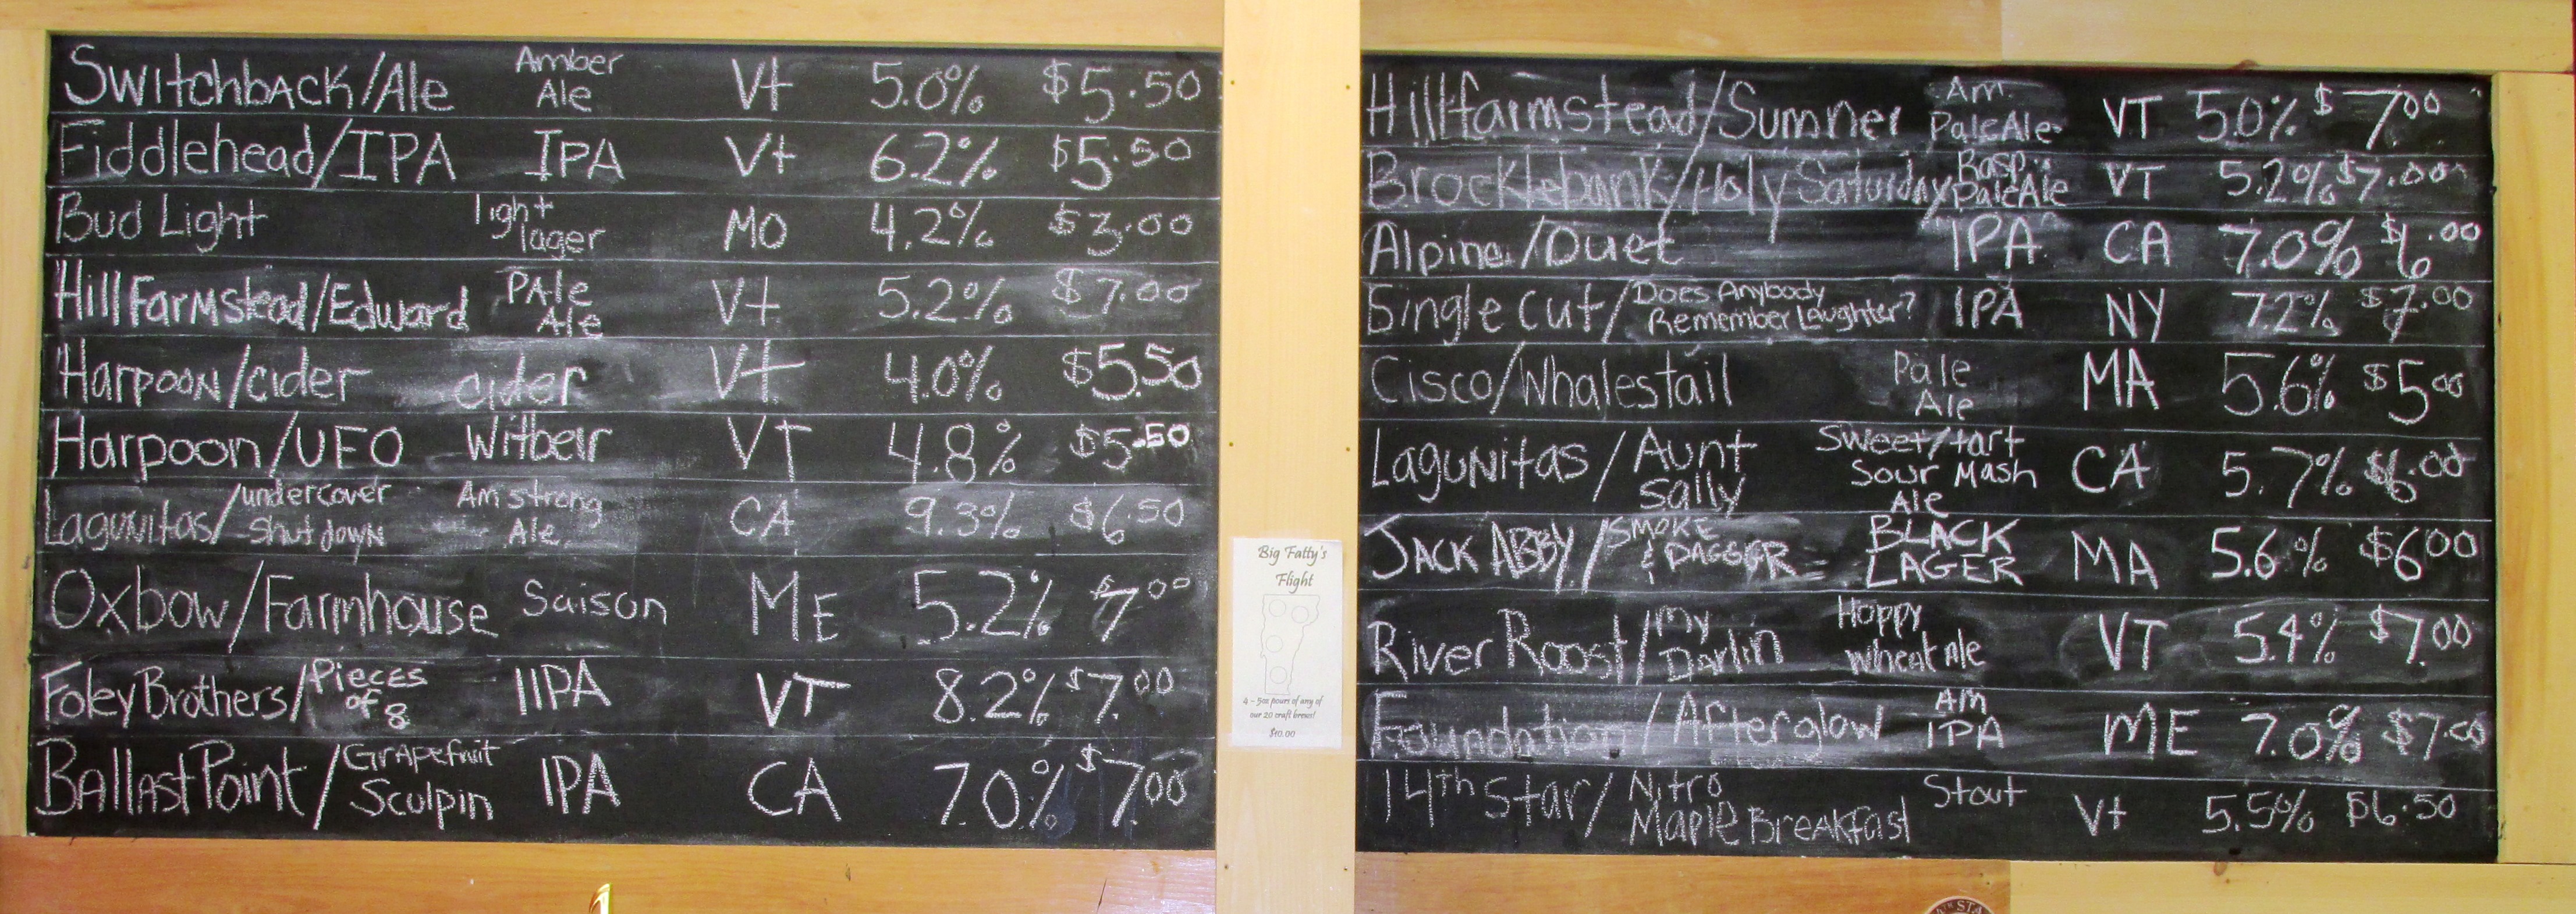 Switchback/Ale Amber Ale Vt 5.0% $5.50
Fiddlehead/IPA IPA Vt 6.2% $5.50
Bud Light light lager MO 4.2% $3.00
Hill Farmstead/Edward Pale Ale Vt 5.2% $7.00
Harpoon/cider cider Vt 4.0% $5.50
Harpoon/UFO Witbeir VT 4.8% $5.50
Lagunitas/undercover shut down Am strong Ale CA 9.3% $6.50
Oxbow/Farmhouse Saison ME 5.2% $7.00
Foley Brothers/Pieces of 8 IIPA VT 8.2% $7.00
Ballast Point/Grapefruit Sculpin IPA CA 7.0% $7.00
Big Fatty's
Flight
4 - 5oz pours of any of
our 20 craft brews!
$10.00
Hillfarmstead/Sumner Am. Pale Ale VT 5.0% $7.00
Brocklebank/Holy Saturday Rasp. Pale Ale VT 5.2% $7.00
Alpine/Duet IPA CA 7.0% $6.00
Single Cut/Does Anybody Remember Laughter? IPA NY 7.2% $7.00
Cisco/Whalestail Pale Ale MA 5.6% $5.00
Lagunitas/Aunt Sally Sweet/tart Sour Mash Ale CA 5.7% $6.00
JACK ABBY/SMOKE & DAGGER BLACK LAGER MA 5.6% $6.00
River Roost/My Darlin Hoppy Wheat Ale VT 5.4% $7.00
Foundation/Afterglow Am IPA ME 7.0% $7.00
14th Star/Nitro Maple Breakfast Stout Vt 5.5% $6.50